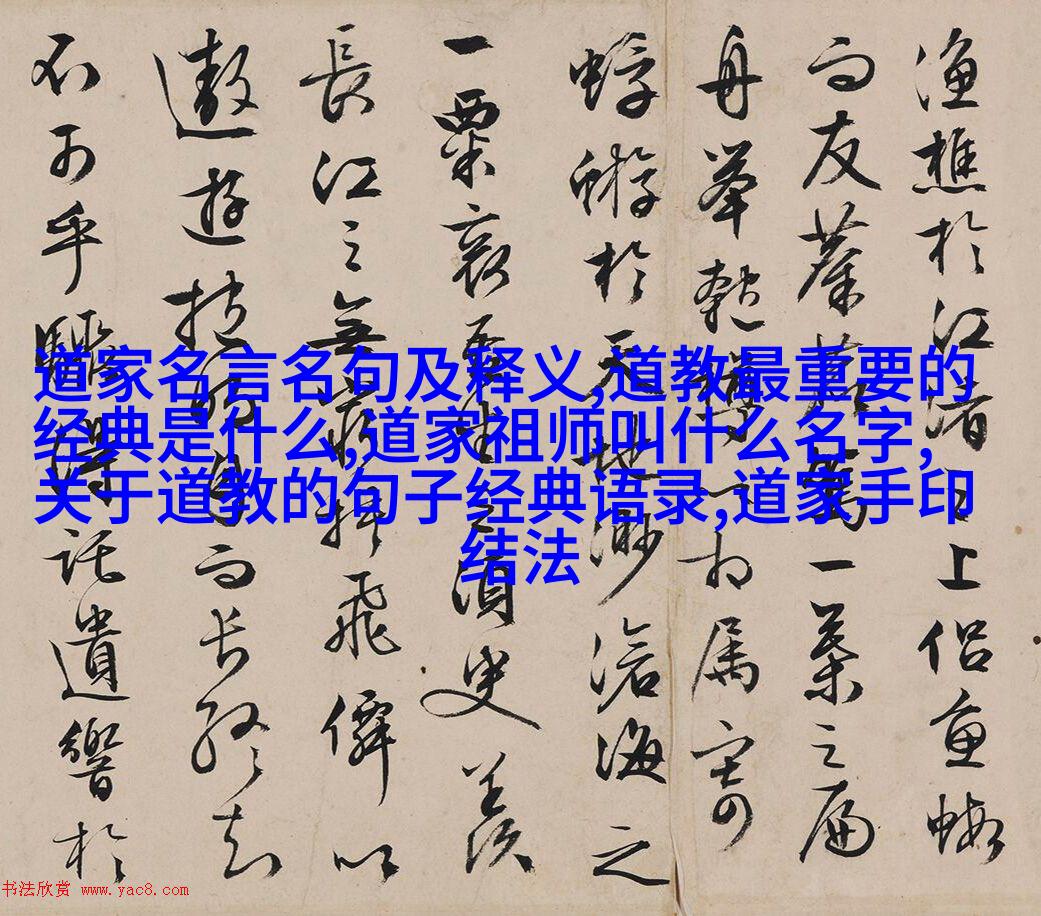 漁樵於江渚之上侶魚蝦
而友麋鹿駕一葉之扁
舟舉匏樽以相属寄
蜉蝣於天地渺滄海之
一粟哀吾生之須臾羨
長江之無窮挾飛僊以
遨遊抱明月而長終知
不可乎驟得託遺響於
道家名言名句及释义,道教最重要的
经典是什么,道家祖师叫什么名字,
关于道教的句子经典语录,道家手印
结法
书法欣赏 www.yac8.com